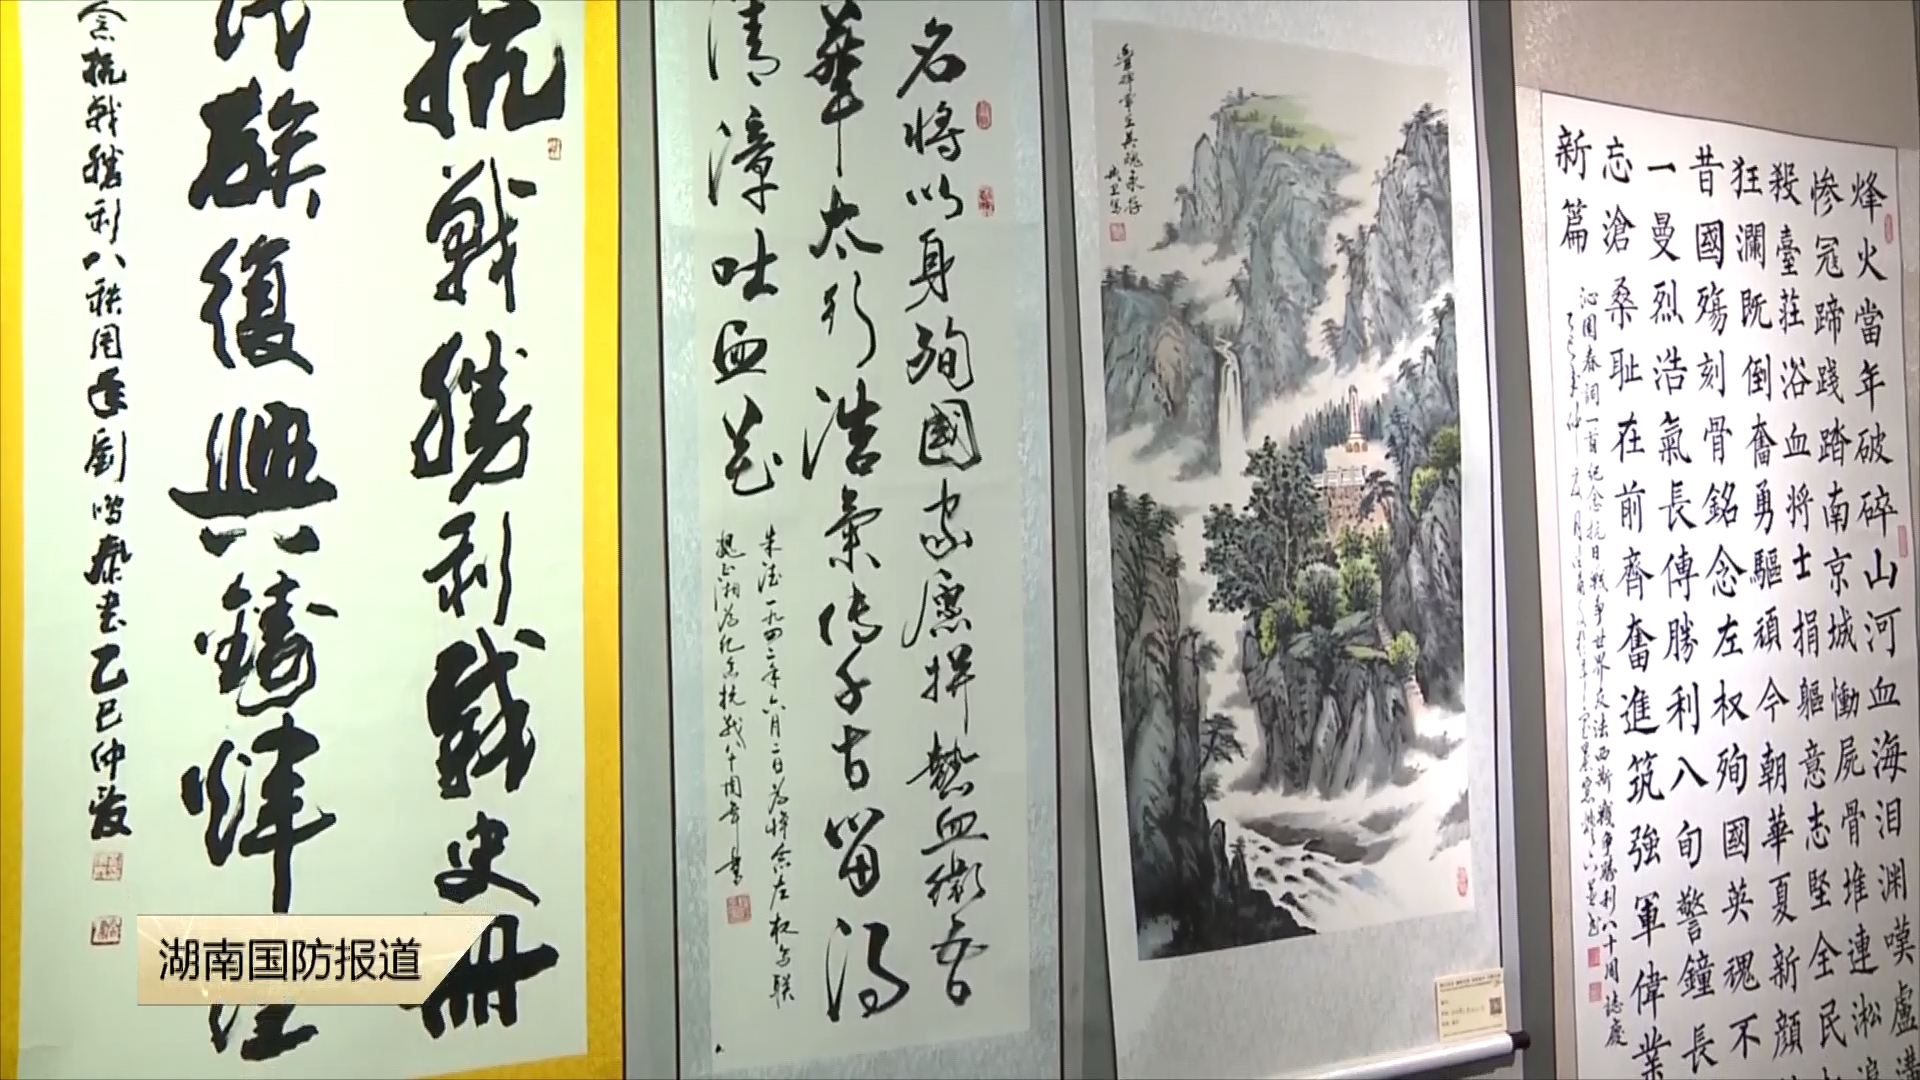 抗戰勝利戰史冊
族復興鑄煒
念抗戰勝利八秩周年劉鴻泰書乙巳仲夏
名將以身殉國家願拼熱血衛吾
華太行浩氣傳千古留得
清漳吐血花
朱德一九四二年六月二日为悼念左权前联
纪念抗战八十周年书
豐碑聳立英魂永存
烽火當年破碎山河血海泪渊嘆盧溝
惨冠蹄踐踏南京城慟屍骨堆連淞滬
殺臺莊浴血将士捐軀意志堅全民
狂瀾既倒奮勇驅頑今朝華夏新顔
昔國殤刻骨銘念左权殉國英魂不
一曼烈浩氣長傳勝利八旬警鐘長
忘滄桑耻在前齊奮進筑強軍偉業
新篇
沁園春詞一首紀念抗日战争世界反法西斯戰争勝利八十周
湖南国防报道